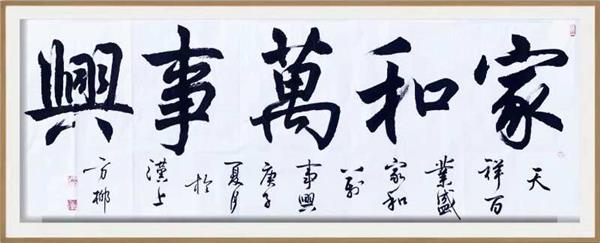 家和萬事興
天
祥百
業盛
家和
萬
事興
庚子
夏月
於
漢上
方